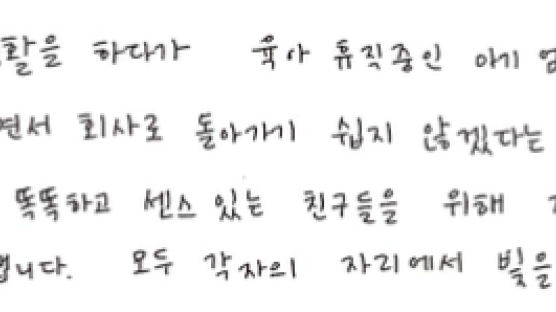 활을 하다가 육아 휴직중인 아기 엄
면서 회사로 돌아가기 쉽지 않겠다는
똑똑하고 센스 있는 친구들을 위해
니다. 모두 각자의 자리에서 빛을